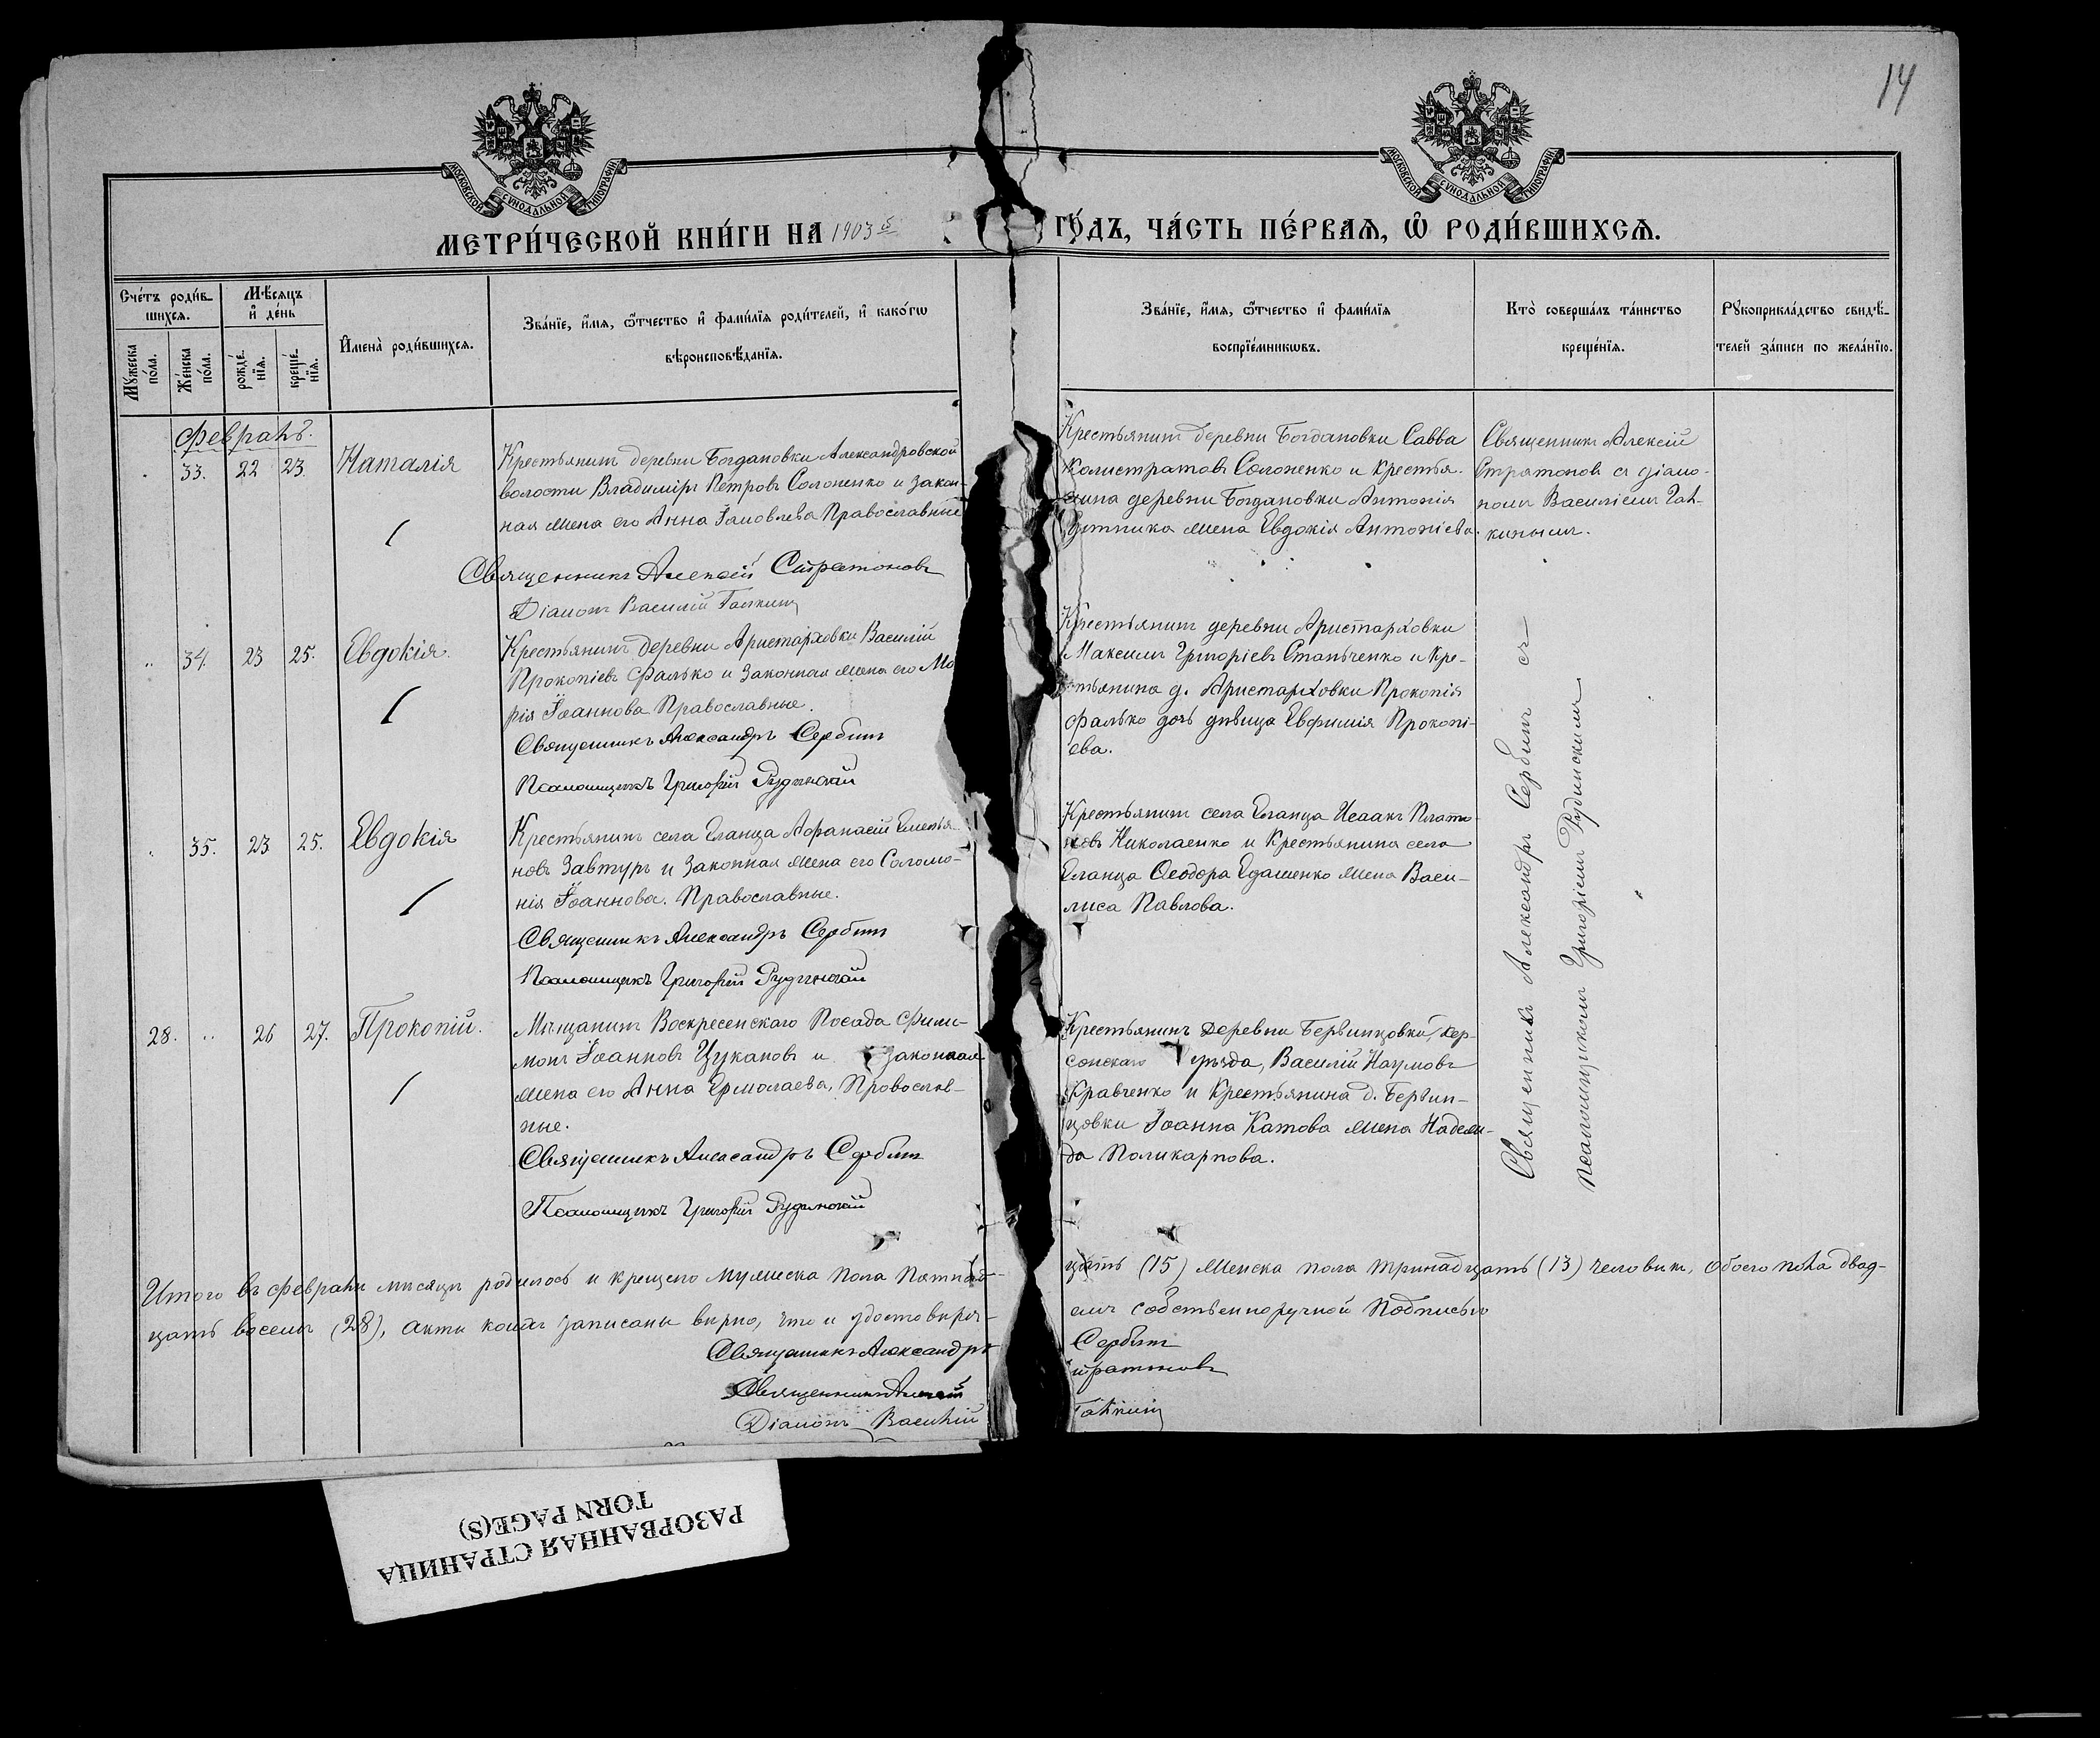 14
МОСКОВСКОЙ СѴНОДАЛЬНОЙ ТИПОГРАФІИ
МОСКОВСКОЙ СѴНОДАЛЬНОЙ ТИПОГРАФІИ
МЕТРИ́ЧЕСКОЙ КНИ́ГИ НА 1903й ГО́ДЪ, ЧА́СТЬ ПЕ́РВАѦ, Ѡ҆ РОДИ́ВШИХСѦ.
Сче́тъ роди́в-
шихсѧ.
Мꙋ́жеска по́ла.
Же́нска по́ла.
Мѣ́сѧцъ
и҆ де́нь
рожде́-
нїѧ.
креще́-
нїѧ.
И҆мена̀ роди́вшихсѧ.
Зва́нїе, и҆́мѧ, ѻ҆́тчество и҆ фами́лїѧ роди́телей, и҆ како́гѡ
вѣроисповѣ́данїѧ.
Зва́нїе, и҆́мѧ, ѻ҆́тчество и҆ фами́лїѧ
воспрїе́мникѡвъ.
Кто̀ соверша́лъ та́инство
креще́нїѧ.
Рꙋкоприкла́дство свидѣ́-
телей за́писи по жела́нїю.
Февраль.
33. 22 23. Наталія
Крестьянинъ деревни Богдановки Александровской
волости Владиміръ Петровъ Солоненко и закон-
ная жена его Анна Іаковлева Православные
Священникъ Алексій Стратоновъ
Діаконъ Василій Галкинъ
Крестьянинъ деревни Богдановки Савва
Калистратовъ Солоненко и крестья-
нина деревни Богдановки Антонія
жена Евдокія Антоніева.
Священникъ Алексій
Стратоновъ съ діако-
номъ Василіемъ Гал-
кинымъ.
„ 34. 23 25. Евдокія.
Крестьянинъ деревни Аристарховки Василій
Прокопіевъ Фалько и законная жена его Ма
рія Іоаннова Православные.
Священникъ Александръ Сербинъ
Псаломщикъ Григорій Рудинскій
Крестьянинъ деревни Аристарховки
Максимъ Григоріевъ Станьченко и кре-
стьянина д. Аристарховки Прокопія
Фалько дочь дѣвица Евфимія Прокопі-
ева.
35. 23 25. Евдокія
Крестьянинъ села Еланца Афанасій Емелья-
новъ Завтуръ и законная жена его Соломо-
нія Іоаннова. Православные.
Священникъ Александръ Сербинъ
Псаломщикъ Григорій Рудинскій
Крестьянинъ села Еланца Исаакъ Плато-
новъ Николаенко и крестьянина села
Еланца Ѳеодора Едашенко жена Васи-
лиса Павлова.
28. „ 26 27. Прокопій.
Мѣщанинъ Воскресенскаго Посада Фили-
монъ Іоанновъ Цукановъ и законная
жена его Анна Ермолаева, Православ-
ные.
Священникъ Александръ Сербинъ
Псаломщикъ Григорій Рудинскій
Крестьянинъ деревни Бервинцовки, Хер-
сонскаго уѣзда, Василій Наумовъ
Кравченко и крестьянина д. Бервин-
цовки Іоанна Катова жена Надеж-
да Поликарпова.
Священникъ Александръ Сербинъ съ
Псаломщикомъ Григоріемъ Рудинскимъ
Итого въ февралѣ мѣсяцѣ родилось и крещено мужеска пола пятнад-цать (15) женска пола тринадцать (13) человѣкъ, обоего пола двад-
цать восемь (28), акты коихъ записаны вѣрно, что и удостовѣря-емъ собственноручной подписью
Священникъ Александръ Сербинъ
Священникъ Алексій Стратоновъ
Діаконъ Василій Галкинъ
РАЗОРВАННАЯ СТРАНИЦА
TORN PAGE(S)